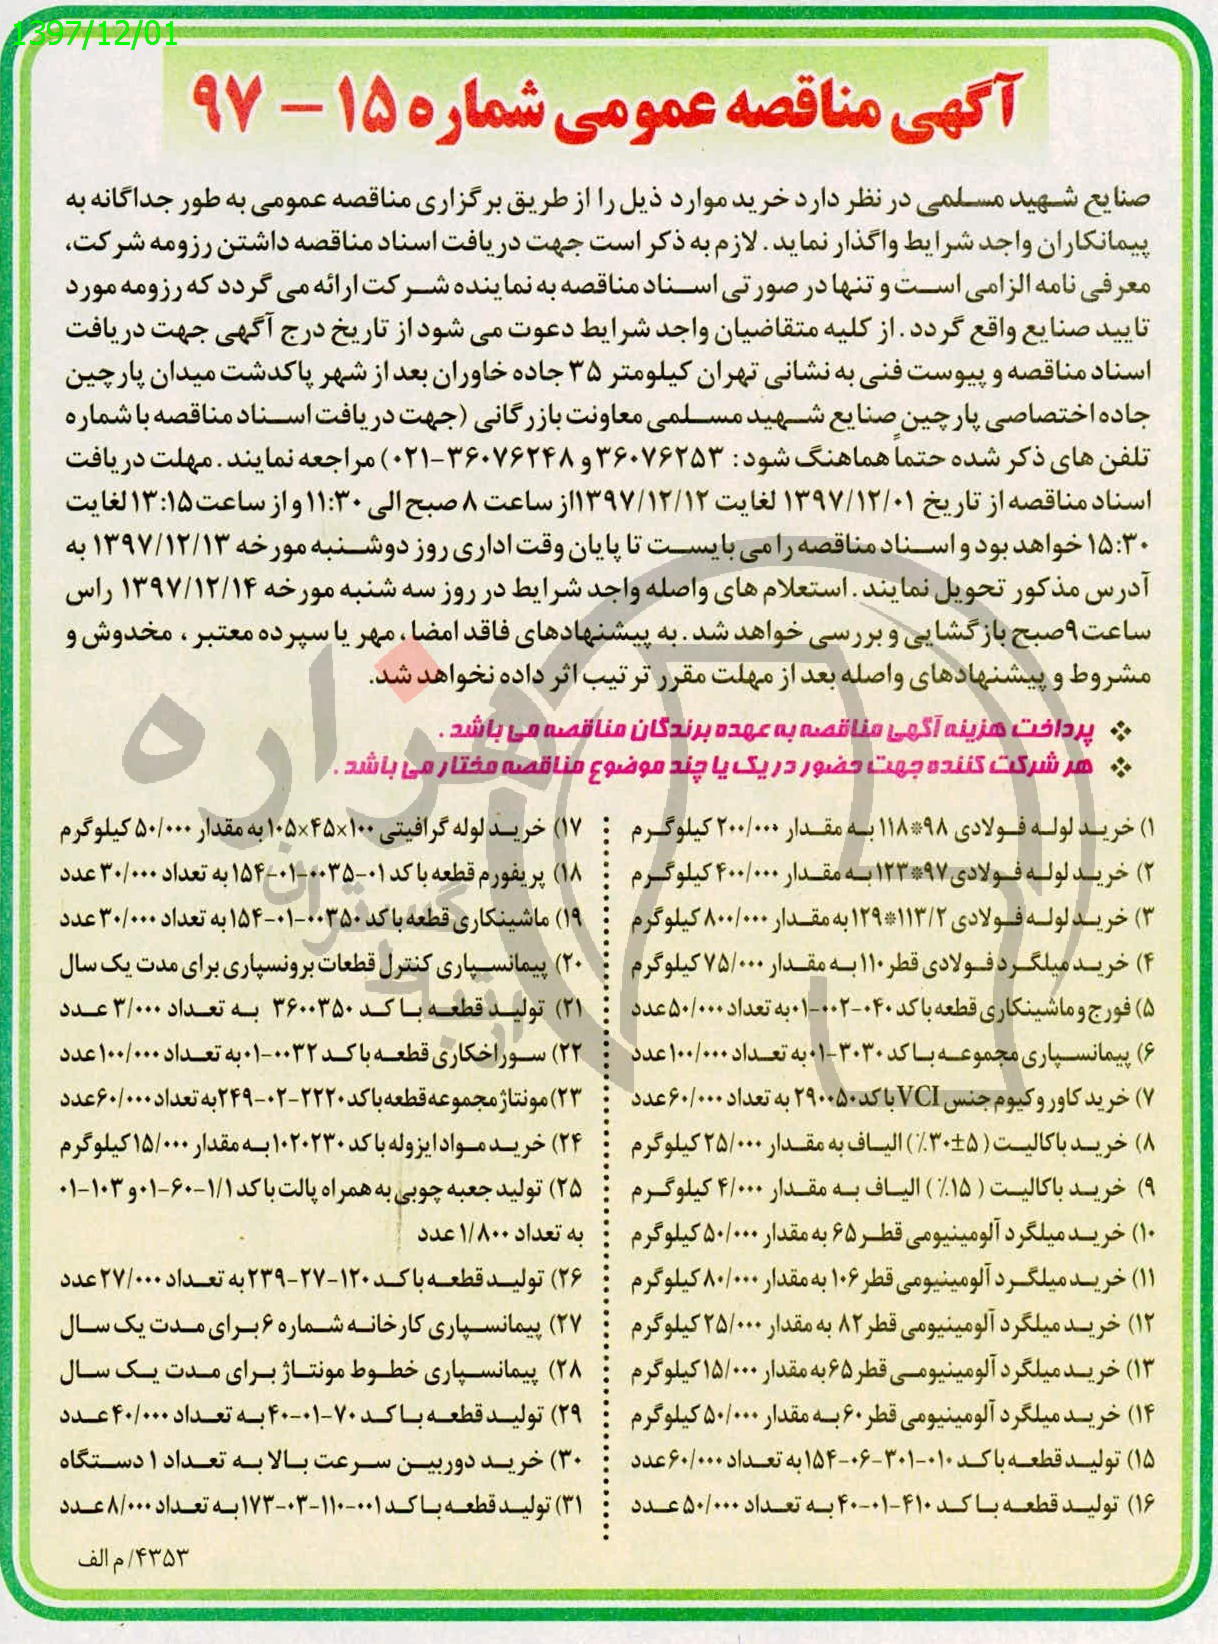 1397/12/01
آگهی مناقصه عمومی شماره ۱۵ - ۹۷
صنایع شهید مسلمی در نظر دارد خرید موارد ذیل را از طریق برگزاری مناقصه عمومی به طور جداگانه به
پیمانکاران واجد شرایط واگذار نماید. لازم به ذکر است جهت دریافت اسناد مناقصه داشتن رزومه شرکت،
معرفی نامه الزامی است و تنها در صورتی اسناد مناقصه به نماینده شرکت ارائه می گردد که رزومه مورد
تایید صنایع واقع گردد. از کلیه متقاضیان واجد شرایط دعوت می شود از تاریخ درج آگهی جهت دریافت
اسناد مناقصه و پیوست فنی به نشانی تهران کیلومتر ۳۵ جاده خاوران بعد از شهر پاکدشت میدان پارچین
جاده اختصاصی پارچین صنایع شهید مسلمی معاونت بازرگانی (جهت دریافت اسناد مناقصه با شماره
تلفن های ذکر شده حتماً هماهنگ شود: ۳۶۰۷۶۲۵۳ و ۳۶۰۷۶۲۴۸-۰۲۱) مراجعه نمایند. مهلت دریافت
اسناد مناقصه از تاریخ ۱۳۹۷/۱۲/۰۱ لغایت ۱۳۹۷/۱۲/۱۲از ساعت ۸ صبح الی ۱۱:۳۰ و از ساعت ۱۳:۱۵ لغایت
۱۵:۳۰ خواهد بود و اسناد مناقصه را می بایست تا پایان وقت اداری روز دوشنبه مورخه ۱۳۹۷/۱۲/۱۳ به
آدرس مذکور تحویل نمایند. استعلام های واصله واجد شرایط در روز سه شنبه مورخه ۱۳۹۷/۱۲/۱۴ راس
ساعت ۹صبح بازگشایی و بررسی خواهد شد. به پیشنهادهای فاقد امضا، مهر یا سپرده معتبر، مخدوش و
مشروط و پیشنهادهای واصله بعد از مهلت مقرر ترتیب اثر داده نخواهد شد.
❖ پرداخت هزینه آگهی مناقصه به عهده برندگان مناقصه می باشد.
❖ هر شرکت کننده جهت حضور در یک یا چند موضوع مناقصه مختار می باشد.
۱) خرید لوله فولادی ۹۸*۱۱۸ به مقدار ۲۰۰/۰۰۰ کیلوگرم
۲) خرید لوله فولادی ۹۷*۱۲۳ به مقدار ۴۰۰/۰۰۰ کیلوگرم
۳) خرید لوله فولادی ۱۱۳/۲*۱۲۹ به مقدار ۸۰۰/۰۰۰ کیلوگرم
۴) خرید میلگرد فولادی قطر ۱۱۰ به مقدار ۷۵/۰۰۰ کیلوگرم
۵) فورج و ماشینکاری قطعه با کد ۰۴۰-۰۰۲-۰۱ به تعداد ۵۰/۰۰۰ عدد
۶) پیمانسپاری مجموعه با کد ۳۰۳۰-۰۱ به تعداد ۱۰۰/۰۰۰ عدد
۷) خرید کاور وکیوم جنس VCI با کد ۲۹۰۰۵۰ به تعداد ۶۰/۰۰۰ عدد
۸) خرید باکالیت (۵±۳۰٪) الیاف به مقدار ۲۵/۰۰۰ کیلوگرم
۹) خرید باکالیت (۱۵٪) الیاف به مقدار ۴/۰۰۰ کیلوگرم
۱۰) خرید میلگرد آلومینیومی قطر ۶۵ به مقدار ۵۰/۰۰۰ کیلوگرم
۱۱) خرید میلگرد آلومینیومی قطر ۱۰۶ به مقدار ۸۰/۰۰۰ کیلوگرم
۱۲) خرید میلگرد آلومینیومی قطر ۸۲ به مقدار ۲۵/۰۰۰ کیلوگرم
۱۳) خرید میلگرد آلومینیومی قطر ۶۵ به مقدار ۱۵/۰۰۰ کیلوگرم
۱۴) خرید میلگرد آلومینیومی قطر ۶۰ به مقدار ۵۰/۰۰۰ کیلوگرم
۱۵) تولید قطعه با کد ۰۱۰-۳۰۱-۰۶-۱۵۴ به تعداد ۶۰/۰۰۰ عدد
۱۶) تولید قطعه با کد ۴۱۰-۰۱-۴۰ به تعداد ۵۰/۰۰۰ عدد
۱۷) خرید لوله گرافیتی ۱۰۰×۴۵×۱۰۵ به مقدار ۵۰/۰۰۰ کیلوگرم
۱۸) پریفورم قطعه با کد ۰۱-۰۰۳۵-۰۱-۱۵۴ به تعداد ۳۰/۰۰۰ عدد
۱۹) ماشینکاری قطعه با کد ۰۰۳۵۰-۰۱-۱۵۴ به تعداد ۳۰/۰۰۰ عدد
۲۰) پیمانسپاری کنترل قطعات برونسپاری برای مدت یک سال
۲۱) تولید قطعه با کد ۳۶۰۰۳۵۰ به تعداد ۳/۰۰۰ عدد
۲۲) سوراخکاری قطعه با کد ۰۰۳۲-۰۱ به تعداد ۱۰۰/۰۰۰ عدد
۲۳) مونتاژ مجموعه قطعه با کد ۲۲۲۰-۰۲-۲۴۹ به تعداد ۶۰/۰۰۰ عدد
۲۴) خرید مواد ایزوله با کد ۱۰۲۰۲۳۰ به مقدار ۱۵/۰۰۰ کیلوگرم
۲۵) تولید جعبه چوبی به همراه پالت با کد ۱/۱-۶۰-۰۱ و ۱۰۳-۰۱
به تعداد ۱/۸۰۰ عدد
۲۶) تولید قطعه با کد ۱۲۰-۲۷-۲۳۹ به تعداد ۲۷/۰۰۰ عدد
۲۷) پیمانسپاری کارخانه شماره ۶ برای مدت یک سال
۲۸) پیمانسپاری خطوط مونتاژ برای مدت یک سال
۲۹) تولید قطعه با کد ۷۰-۰۱-۴۰ به تعداد ۴۰/۰۰۰ عدد
۳۰) خرید دوربین سرعت بالا به تعداد ۱ دستگاه
۳۱) تولید قطعه با کد ۰۰۱-۱۱۰-۰۳-۱۷۳ به تعداد ۸/۰۰۰ عدد
۴۳۵۳/م الف
هزاره